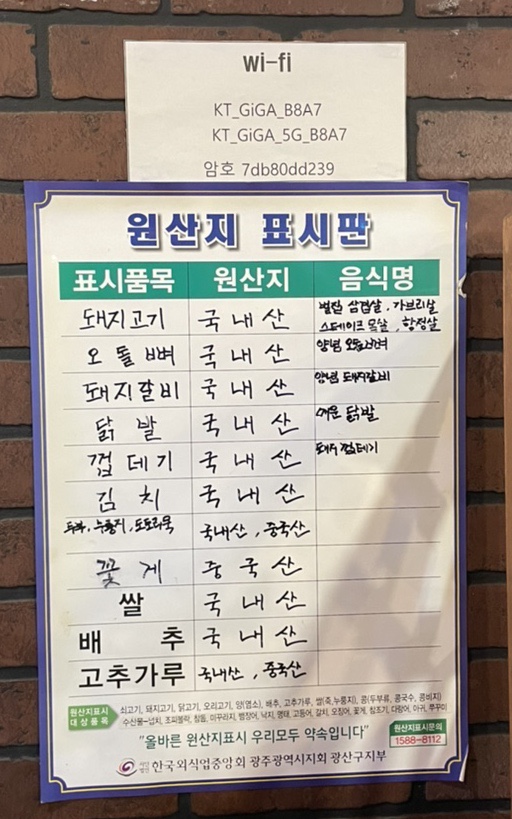 wi-fi
KT_GiGA_B8A7
KT_GiGA_5G_B8A7
암호 7db80dd239
원산지 표시판
표시품목 원산지 음식명
돼지고기 국내산 벌집 삼겹살, 가브리살
스테이크 목살, 항정살
오돌뼈 국내산 양념 오돌뼈
돼지갈비 국내산 양념 돼지갈비
닭발 국내산 매운 닭발
껍데기 국내산 돼지 껍데기
김치 국내산
두부, 누룽지, 도토리묵 국내산, 중국산
꽃게 중국산
쌀 국내산
배추 국내산
고추가루 국내산, 중국산
원산지표시 대상품목
쇠고기, 돼지고기, 닭고기, 오리고기, 양(염소), 배추, 고추가루, 쌀(죽,누룽지), 콩(두부류, 콩국수, 콩비지)
수산물-넙치, 조피볼락, 참돔, 미꾸라지, 뱀장어, 낙지, 명태, 고등어, 갈치, 오징어, 꽃게, 참조기, 다랑어, 아귀, 쭈꾸미
"올바른 원산지표시 우리모두 약속입니다"
원산지표시문의
1588-8112
사단법인 한국외식업중앙회 광주광역시지회 광산구지부